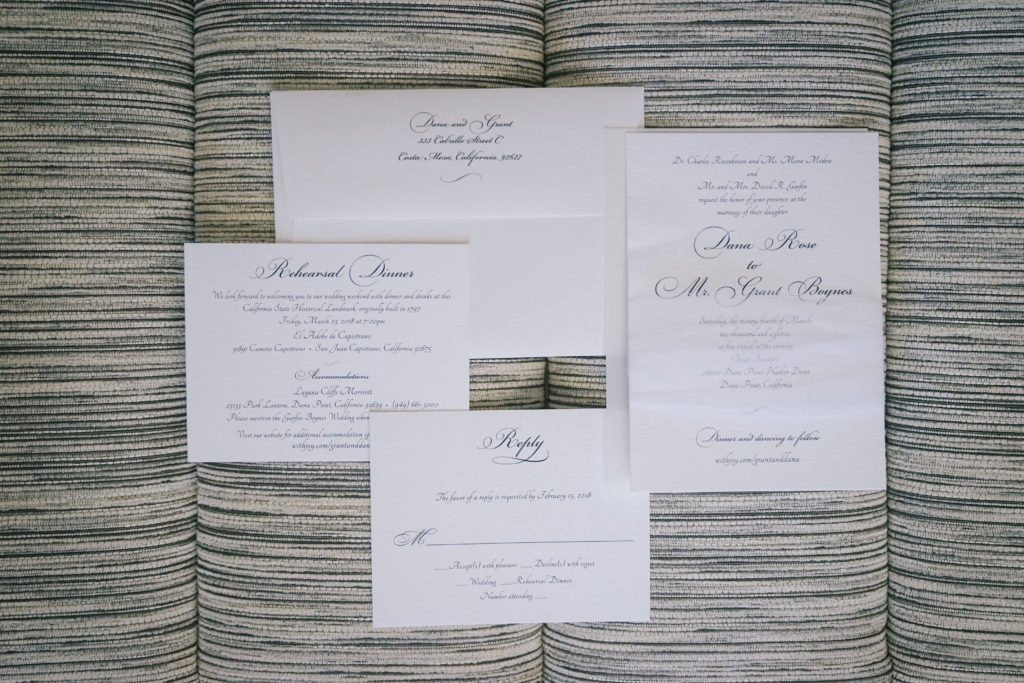 Dana and Grant
333 Cabrillo Street C
Costa Mesa, California, 92627
Dr. Charles Rosenbaum and Ms. Mona Medow
and
Mr. and Mrs. David R. Garfin
request the honor of your presence at the
marriage of their daughter
Dana Rose
to
Mr. Grant Boynes
Saturday, the twenty fourth of March
two thousand and eighteen
at five o'clock in the evening
Ocean Institute
24200 Dana Point Harbor Drive
Dana Point, California
Dinner and dancing to follow
withjoy.com/grantanddana
Rehearsal Dinner
We look forward to welcoming you to our wedding weekend with dinner and drinks at this
California State Historical Landmark, originally built in 1797
Friday, March 23, 2018 at 7:00pm
El Adobe de Capistrano
31891 Camino Capistrano • San Juan Capistrano, California 92675
Accommodations
Laguna Cliffs Marriott
25135 Park Lantern, Dana Point, California 92629 • (949) 661-5000
Please mention the Garfin-Boynes Wedding when
Visit our website for additional accommodation
withjoy.com/grantanddana
Reply
The favor of a reply is requested by February 15, 2018
M
___ Accept(s) with pleasure ___ Decline(s) with regret
___ Wedding ___ Rehearsal Dinner
Number attending ___